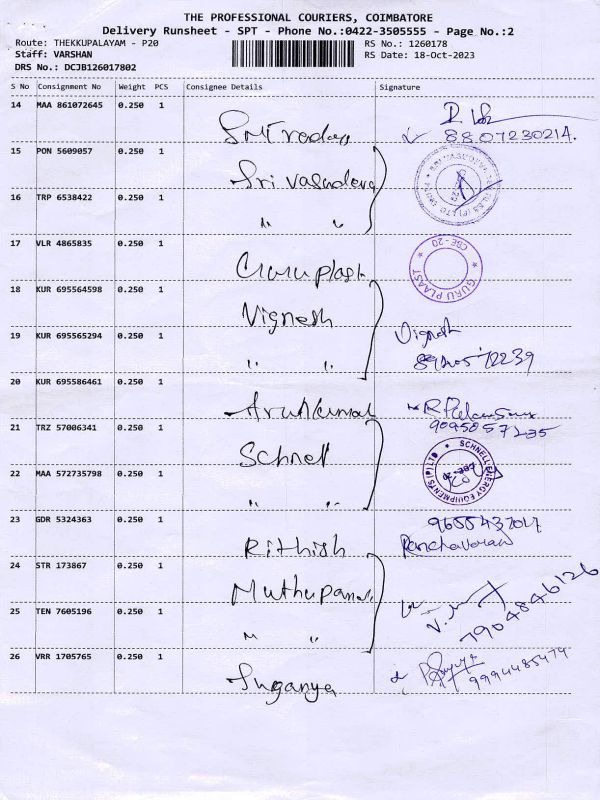 THE PROFESSIONAL COURIERS, COIMBATORE
Delivery Runsheet - SPT - Phone No.:0422-3505555 - Page No.:2
Route: THEKKUPALAYAM - P20 RS No.: 1260178
Staff: VARSHAN RS Date: 18-Oct-2023
DRS No.: DCJB126017802
S No Consignment No Weight PCS Consignee Details Signature
14 MAA 861072645 0.250 1
8807230214.
15 PON 5609057 0.250 1
Sri Vasudeva
16 TRP 6538422 0.250 1
" "
17 VLR 4865835 0.250 1
Guru plast
CBE-20
GURU PLAAST
18 KUR 695564598 0.250 1
Vignesh
19 KUR 695565294 0.250 1
" "
Vignesh
20 KUR 695586461 0.250 1
Arunkumar
21 TRZ 57006341 0.250 1
Schnell
9095057235
22 MAA 572735798 0.250 1
" "
SCHNELL ENERGY EQUIPMENTS (P) LTD
CBE-20
23 GDR 5324363 0.250 1
Rithish
24 STR 173867 0.250 1
25 TEN 7605196 0.250 1
" "
7904846126
26 VRR 1705765 0.250 1
Suganya
9994485474